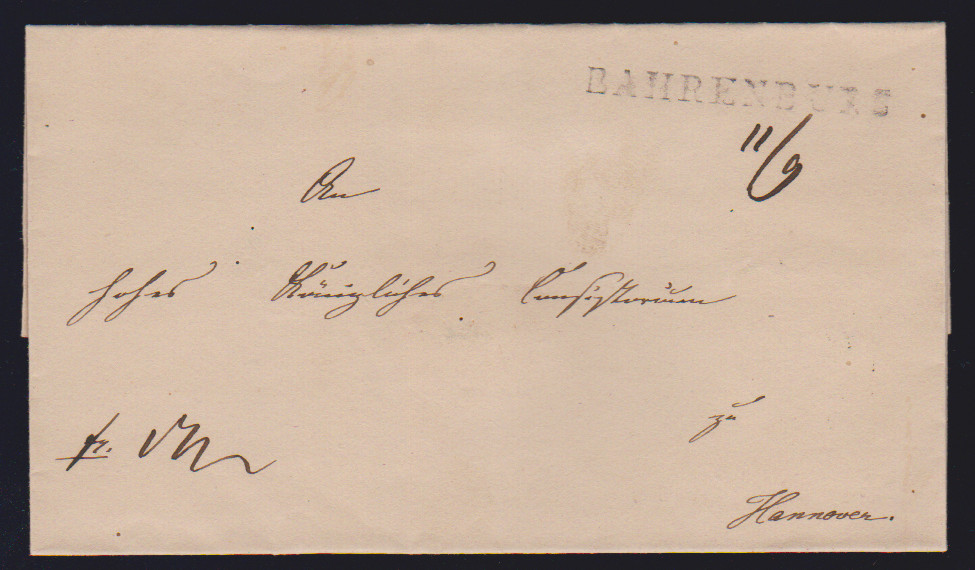 BAHRENBURG
11/9
An
hohes Königliches Consistorium
fr.
zu
Hannover.